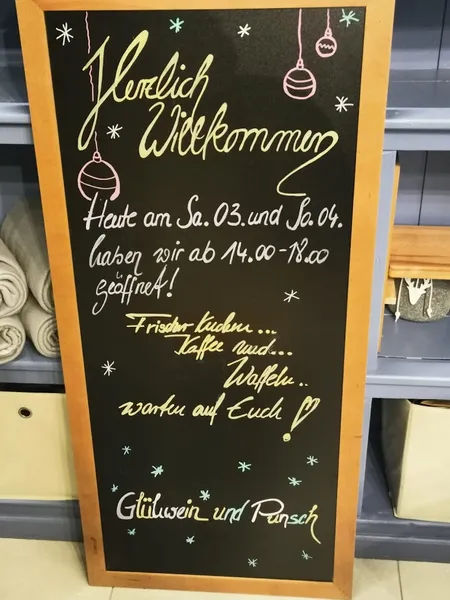 Herzlich
Willkommen
Heute am Sa. 03. und So. 04.
haben wir ab 14.00-18.00
geöffnet!
Frischer Kuchen...
Kaffee und...
Waffeln..
warten auf Euch!
Glühwein und Punsch